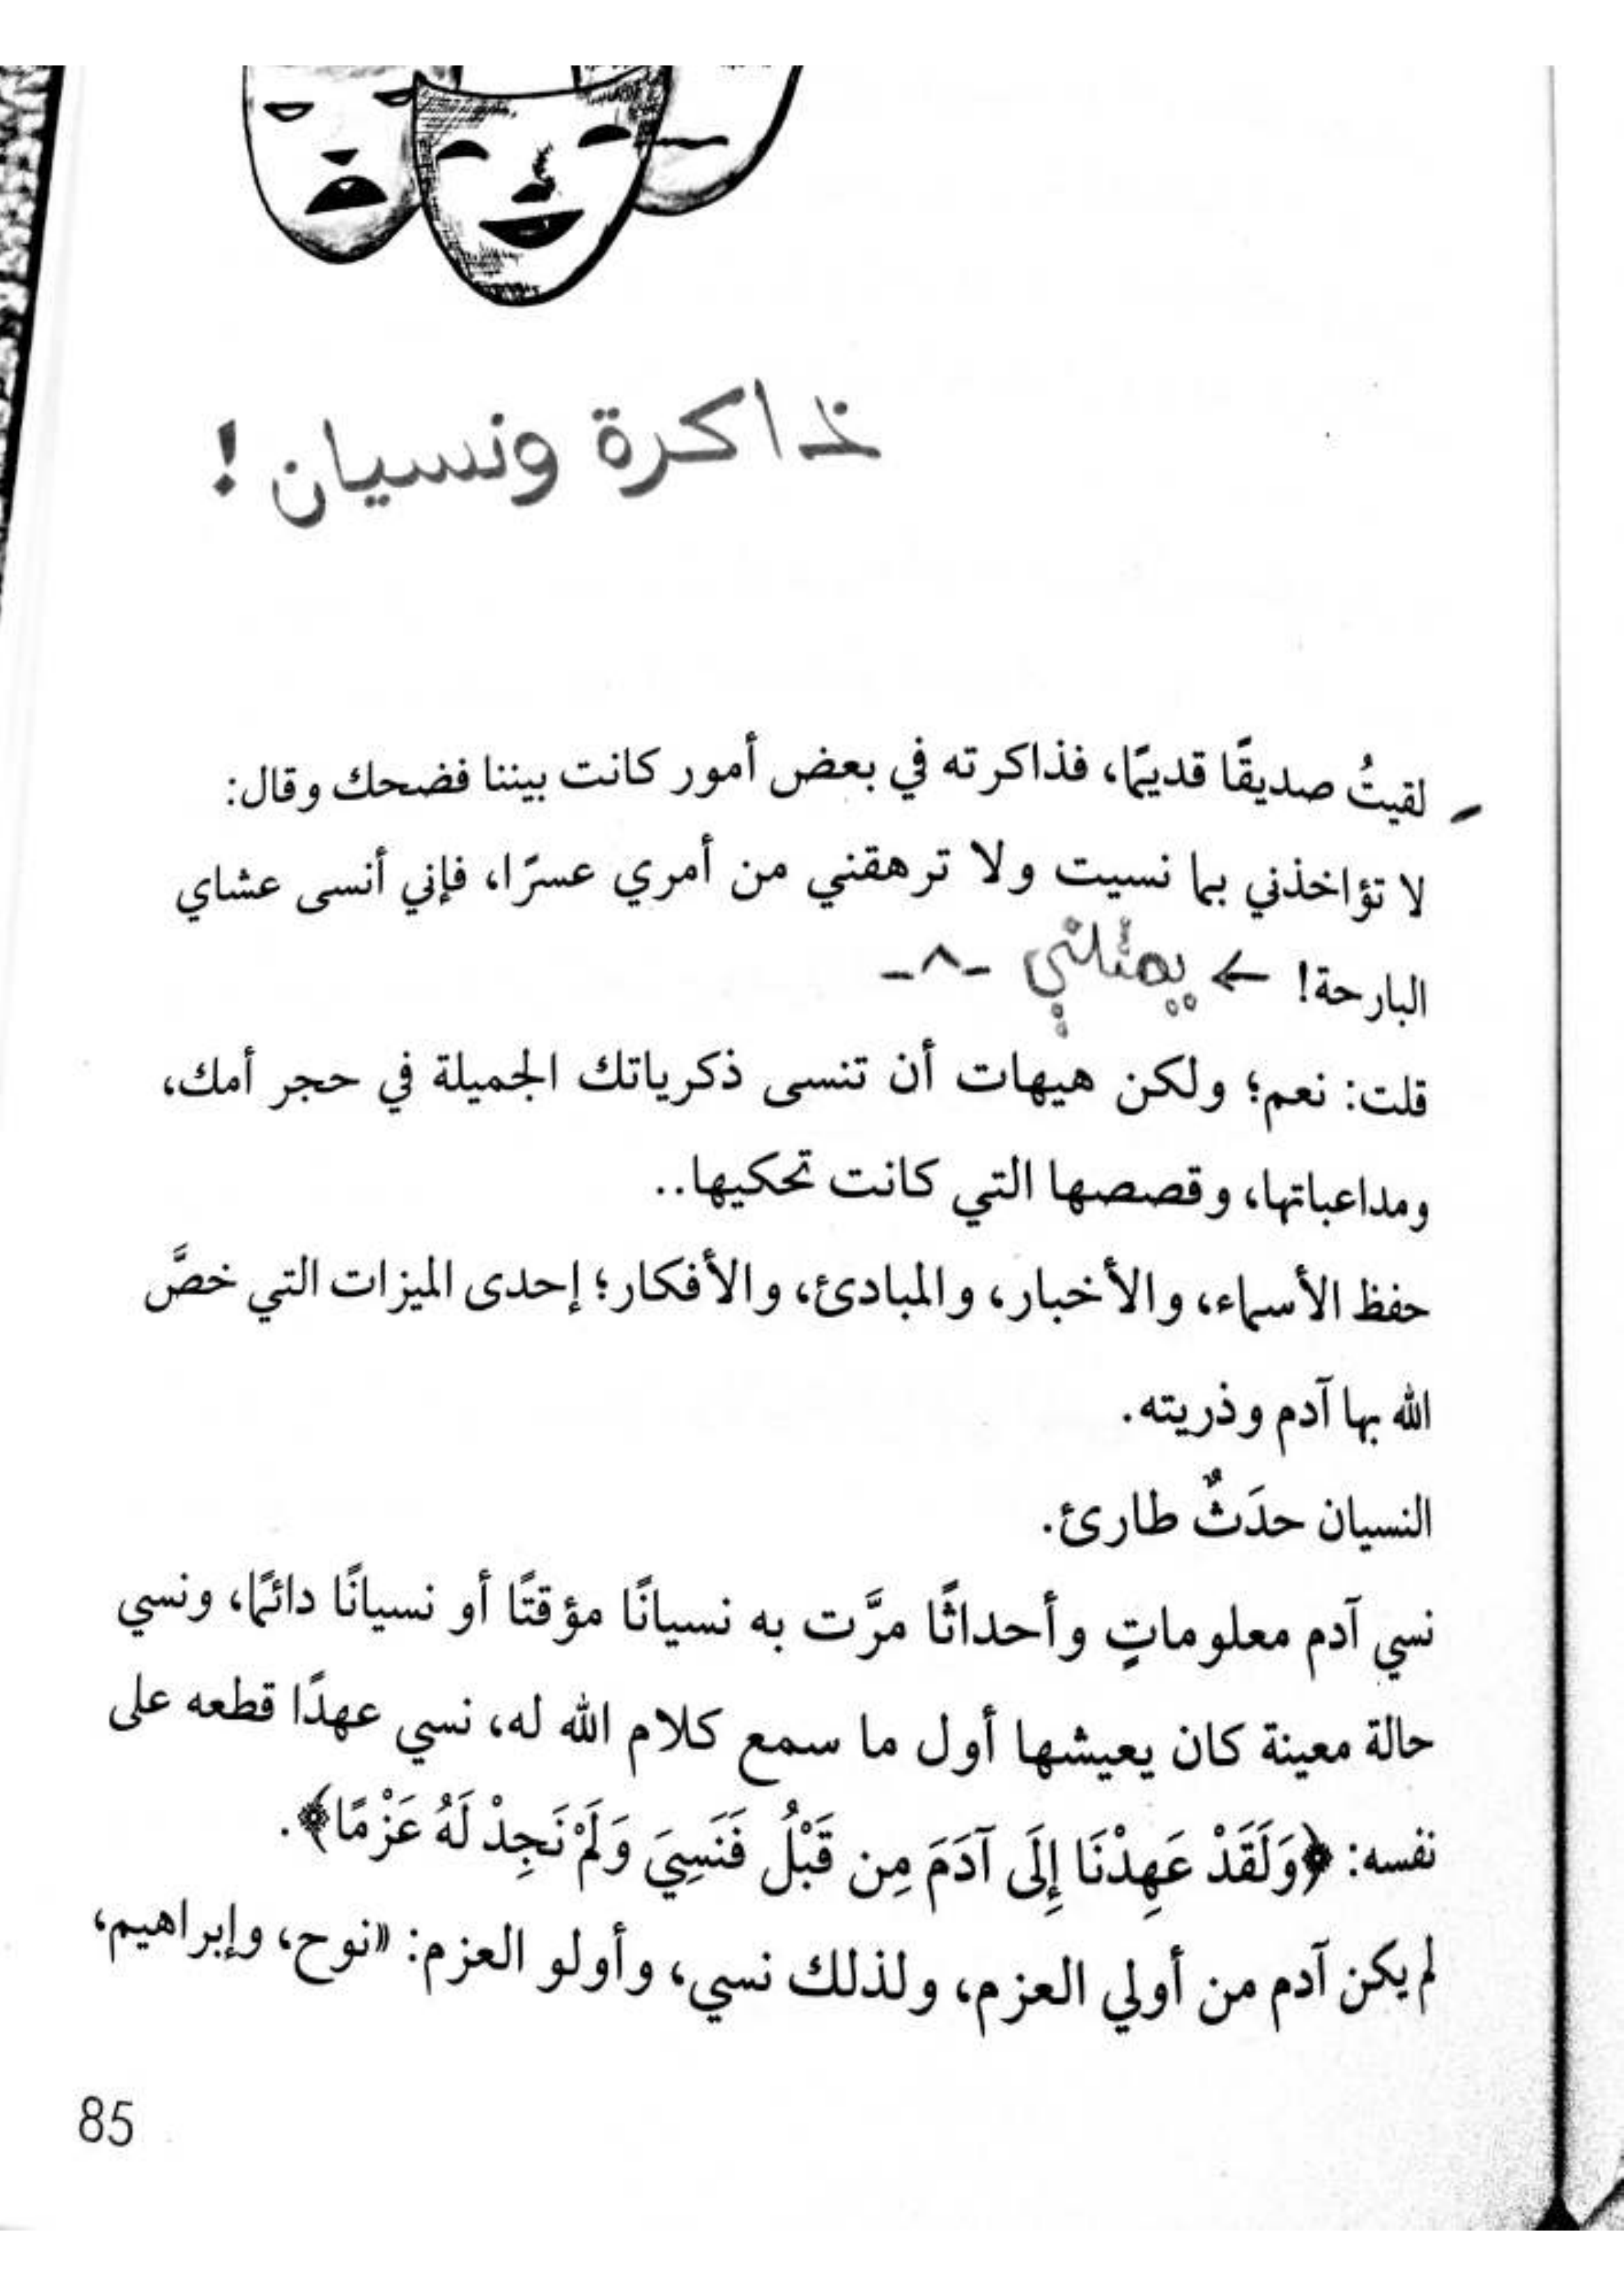 ذاكرة ونسيان !
لقيتُ صديقًا قديمًا، فذاكرته في بعض أمور كانت بيننا فضحك وقال:
لا تؤاخذني بما نسيت ولا ترهقني من أمري عسرًا، فإني أنسى عشاي
البارحة! ← يمثلني -^-
قلت: نعم؛ ولكن هيهات أن تنسى ذكرياتك الجميلة في حجر أمك،
ومداعباتها، وقصصها التي كانت تحكيها..
حفظ الأسماء، والأخبار، والمبادئ، والأفكار؛ إحدى الميزات التي خصَّ
الله بها آدم وذريته.
النسيان حدَثٌ طارئ.
نسي آدم معلوماتٍ وأحداثًا مرَّت به نسيانًا مؤقتًا أو نسيانًا دائمًا، ونسي
حالة معينة كان يعيشها أول ما سمع كلام الله له، نسي عهدًا قطعه على
نفسه: ﴿وَلَقَدْ عَهِدْنَا إِلَى آدَمَ مِن قَبْلُ فَنَسِيَ وَلَمْ نَجِدْ لَهُ عَزْمًا﴾.
لم يكن آدم من أولي العزم، ولذلك نسي، وأولو العزم: «نوح، وإبراهيم،
85